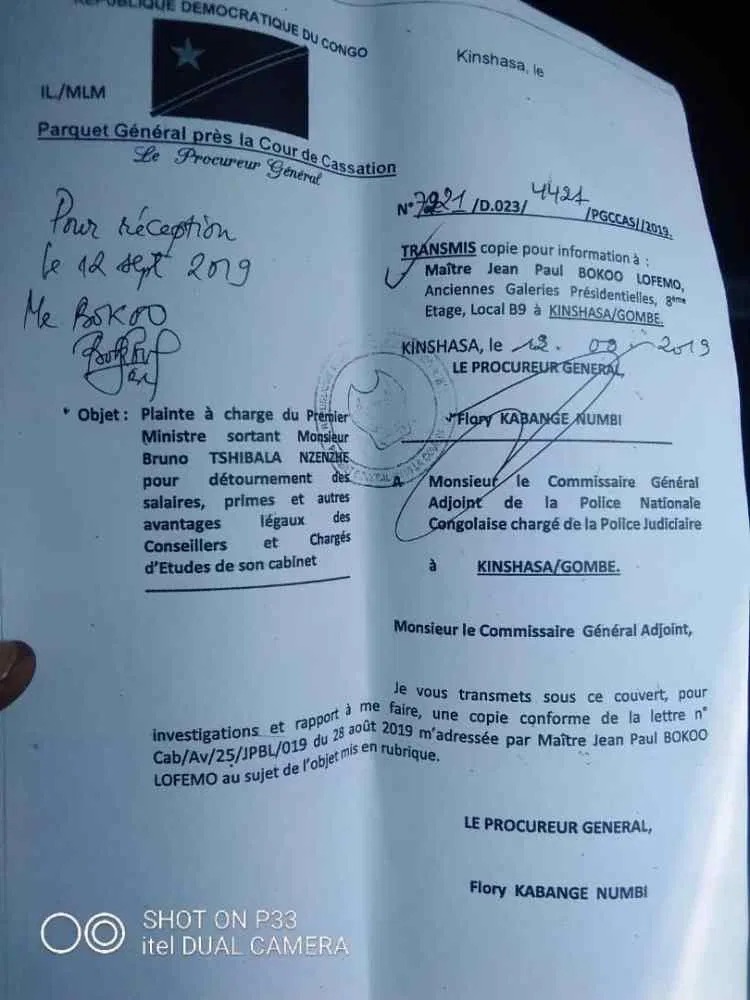 RÉPUBLIQUE DÉMOCRATIQUE DU CONGO
Kinshasa, le
IL./MLM
Parquet Général près la Cour de Cassation
Le Procureur Général
Pour réception
le 12 sept 2019
Me BOKOO
N° 7221 /D.023/ 4421 /PGCCAS//2019.
TRANSMIS copie pour information à :
Maître Jean Paul BOKOO LOFEMO,
Anciennes Galeries Présidentielles, 8ème
Etage, Local B9 à KINSHASA/GOMBE.
KINSHASA, le 12. 09 - 2019
LE PROCUREUR GENERAL,
Flory KABANGE NUMBI
Objet : Plainte à charge du Premier
Ministre sortant Monsieur
Bruno TSHIBALA NZENZHE
pour détournement des
salaires, primes et autres
avantages légaux des
Conseillers et Chargés
d'Etudes de son cabinet
A Monsieur le Commissaire Général
Adjoint de la Police Nationale
Congolaise chargé de la Police Judiciaire
à KINSHASA/GOMBE.
Monsieur le Commissaire Général Adjoint,
Je vous transmets sous ce couvert, pour
investigations et rapport à me faire, une copie conforme de la lettre n°
Cab/Av/25/JPBL/019 du 28 août 2019 m'adressée par Maître Jean Paul BOKOO
LOFEMO au sujet de l'objet mis en rubrique.
LE PROCUREUR GENERAL,
Flory KABANGE NUMBI
SHOT ON P33
itel DUAL CAMERA